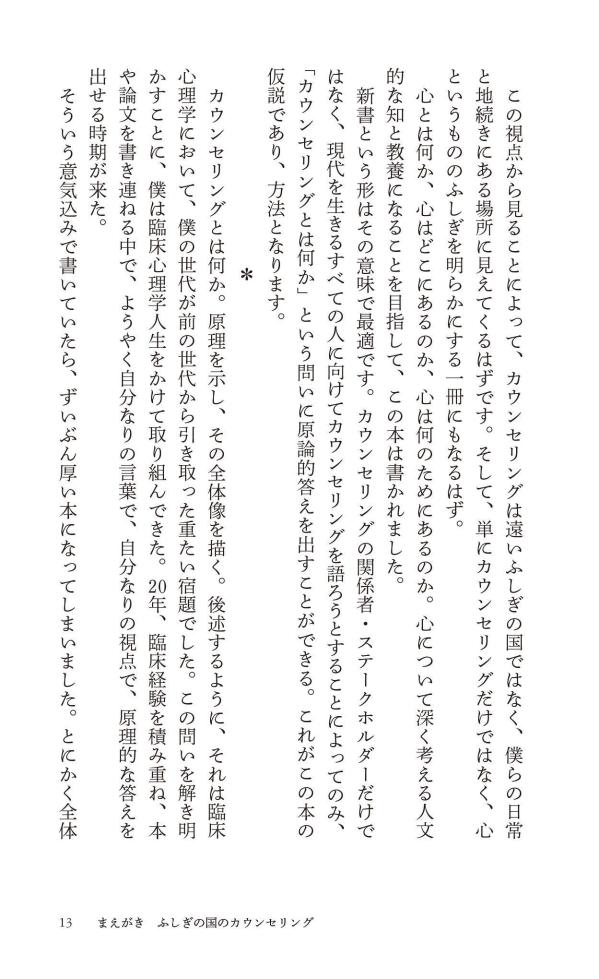 この視点から見ることによって、カウンセリングは遠いふしぎの国ではなく、僕らの日常
と地続きにある場所に見えてくるはずです。そして、単にカウンセリングだけではなく、心
というもののふしぎを明らかにする一冊にもなるはず。
　心とは何か、心はどこにあるのか、心は何のためにあるのか。心について深く考える人文
的な知と教養になることを目指して、この本は書かれました。
　新書という形はその意味で最適です。カウンセリングの関係者・ステークホルダーだけで
はなく、現代を生きるすべての人に向けてカウンセリングを語ろうとすることによってのみ、
「カウンセリングとは何か」という問いに原論的答えを出すことができる。これがこの本の
仮説であり、方法となります。
＊
　カウンセリングとは何か。原理を示し、その全体像を描く。後述するように、それは臨床
心理学において、僕の世代が前の世代から引き取った重たい宿題でした。この問いを解き明
かすことに、僕は臨床心理学人生をかけて取り組んできた。20年、臨床経験を積み重ね、本
や論文を書き連ねる中で、ようやく自分なりの言葉で、自分なりの視点で、原理的な答えを
出せる時期が来た。
　そういう意気込みで書いていたら、ずいぶん厚い本になってしまいました。とにかく全体
13　まえがき　ふしぎの国のカウンセリング